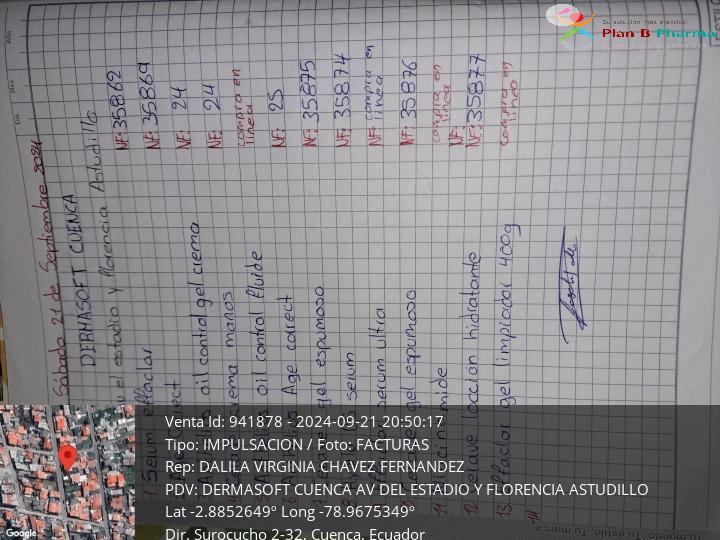 Sábado 21 de Septiembre 2024
DERMASOFT CUENCA
el estadio y florencia Astudillo
1 Serum effaclar NF: 35862
NF: 35869
oil control gel crema NF: 24
crema manos NF: 24
oil control fluide compra en linea
Age correct NF: 25
gel espumoso NF: 35875
serum NF: 35874
serum ultra NF: compra en linea
gel espumoso NF: 35876
11 mide compra en linea
12 locción hidratante NF: NF: 35877
13 effaclar gel limpiador 400g compra en linea
14
Su solución más efectiva!
Plan B Pharma
Venta Id: 941878 - 2024-09-21 20:50:17
Tipo: IMPULSACION / Foto: FACTURAS
Rep: DALILA VIRGINIA CHAVEZ FERNANDEZ
PDV: DERMASOFT CUENCA AV DEL ESTADIO Y FLORENCIA ASTUDILLO
Lat -2.8852649º Long -78.9675349º
Dir. Surocucho 2-32, Cuenca, Ecuador
Google